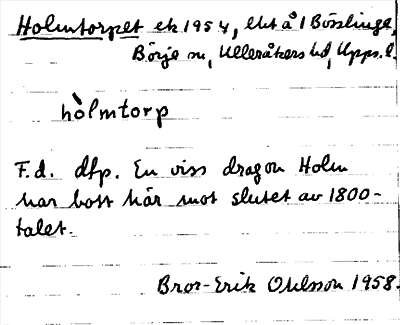 Holmtorpet ek 1954, lht å 1 Bösslinge,
Börje sn, Ulleråkers hd, Upps. l.
hòlmtorp
F.d. dtp. En viss dragon Holm
har bott här mot slutet av 1800-
talet.
Bror-Erik Ohlsson 1958.